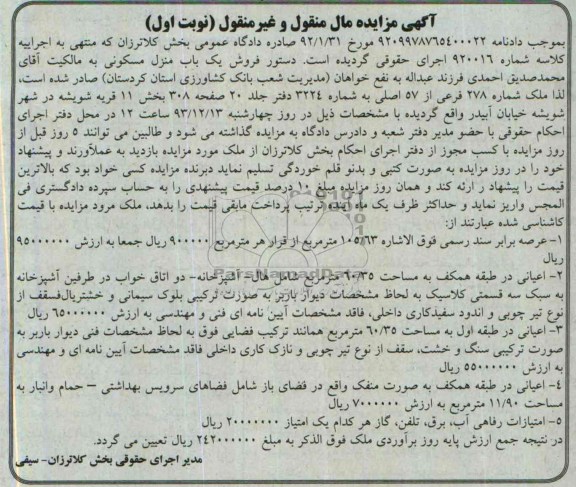 آگهی مزایده مال منقول و غیرمنقول (نوبت اول)
بموجب دادنامه ۹۲۰۹۹۷۸۷۶۵۴۰۰۰۲۲ مورخ ۹۲/۱/۳۱ صادره دادگاه عمومی بخش کلاترزان که منتهی به اجراییه
کلاسه شماره ۹۲۰۰۱۶ اجرای حقوقی گردیده است. دستور فروش یک باب منزل مسکونی به مالکیت آقای
محمدصدیق احمدی فرزند عبداله به نفع خواهان (مدیریت شعب بانک کشاورزی استان کردستان) صادر شده است،
لذا ملک شماره ۲۷۸ فرعی از ۵۷ اصلی به شماره ۳۲۲۴ دفتر جلد ۲۰ صفحه ۳۰۸ بخش ۱۱ قریه شویشه در شهر
شویشه خیابان آبیدر واقع گردیده با مشخصات ذیل در روز چهارشنبه ۹۳/۱۲/۱۳ ساعت ۱۲ در محل دفتر اجرای
احکام حقوقی با حضو مدیر دفتر شعبه و دادرس دادگاه به مزایده گذاشته می شود و طالبین می توانند ۵ روز قبل از
روز مزایده با کسب مجوز از دفتر اجرای احکام بخش کلاترزان از ملک مورد مزایده بازدید به عمل‌آورند و پیشنهاد
خود را در روز مزایده به صورت کتبی و بدنو قلم خوردگی تسلیم نماید دبرنده مزایده کسی خواد بود که بالاترین
قیمت را پیشهاد ر ارئه کند و همان روز مزایده مبلغ ۱۰ درصد قیمت پیشنهدی را به حساب سپرده دادگستری فی
المجس واریز نماید و حداکثر ظرف یک ماه آینده ترتیب پرداخت مابقی قیمت را بدهد، ملک مرود مزایده با قیمت
کاشناسی شده عبارتند از:
۱- عرصه برابر سند رسمی فوق الاشاره ۱۰۵/۶۳ مترمربع از قرار هر مترمربع ۹۰۰۰۰۰ ریال جمعا به ارزش ۹۵۰۰۰۰۰۰
ریال
۲- اعیانی در طبقه همکف به مساحت ۶۰/۳۵ مترمربع شامل هال- آشپزخانه- دو اتاق خواب در طرفین آشپزخانه
به سبک سه قسمتی کلاسیک به لحاظ مشخصات دیوار باربر به صورت ترکیبی بلوک سیمانی و خشتریال‌فسقف از
نوع تیر چوبی و اندود سفیدکاری داخلی، فاقد مشخصات آیین نامه ای فنی و مهندسی به ارزش ۶۵۰۰۰۰۰۰ ریال
۳- اعیانی در طبقه اول به مساحت ۶۰/۳۵ مترمربع همانند ترکیب فضایی فوق به لحاظ مشخصات فنی دیوار باربر به
صورت ترکیبی سنگ و خشت، سقف از نوع تیر چوبی و نازک کاری داخلی فاقد مشخصات آیین نامه ای و مهندسی
به ارزش ۵۵۰۰۰۰۰۰ ریال
۴- اعیانی در طبقه همکف به صورت منفک واقع در فضای باز شامل فضاهای سرویس بهداشتی – حمام وانبار به
مساحت ۱۱/۹۰ مترمربع به ارزش ۷۰۰۰۰۰۰ ریال
۵- امتیازات رفاهی آب، برق، تلفن، گاز هر کدام یک امتیاز ۲۰۰۰۰۰۰۰ ریال
در نتیجه جمع ارزش پایه روز برآوردی ملک فوق الذکر به مبلغ ۲۴۲۰۰۰۰۰۰ ریال تعیین می گردد.
مدیر اجرای حقوقی بخش کلاترزان- سیفی